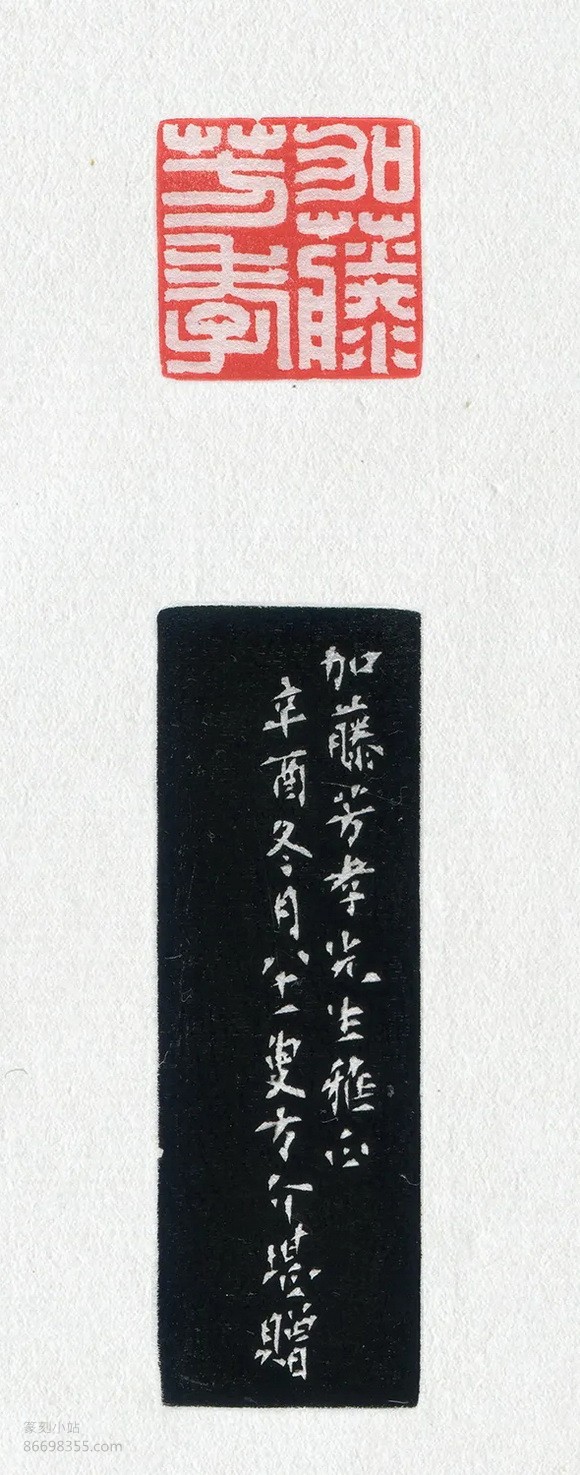 加藤
芳孝
加藤芳孝先生雅正
辛酉冬月八十一叟方介堪贈
篆刻小站
86698355.com